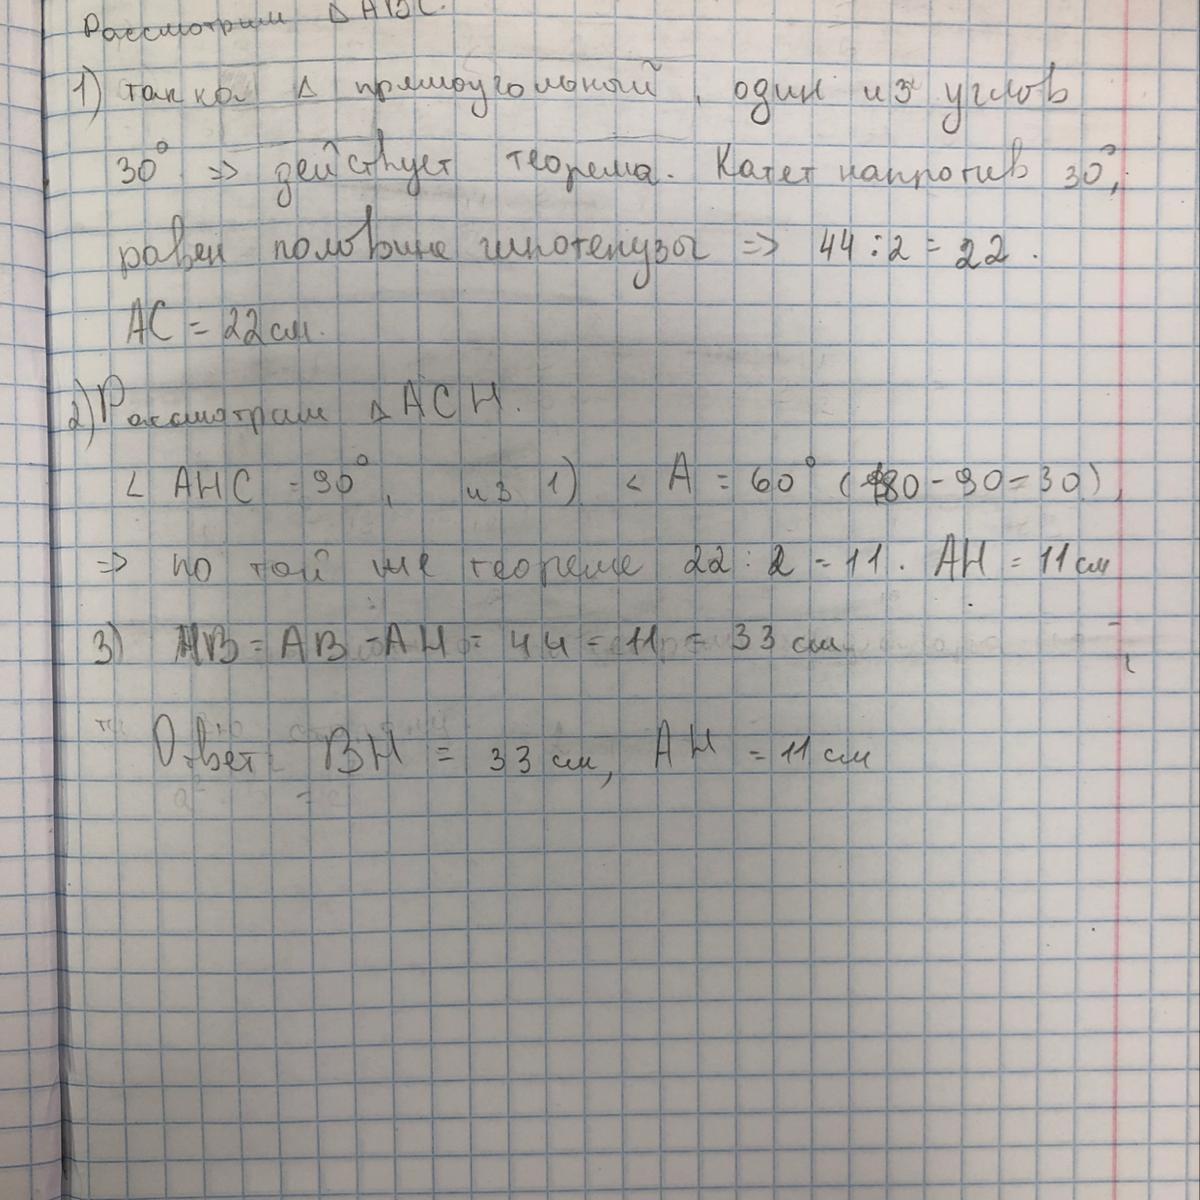 Рассмотрим △ ABC.
1) так как △ прямоугольный, один из углов
30° => действует теорема. Катет напротив 30°,
равен половине гипотенузы => 44 : 2 = 22.
AC = 22 см.
2) Рассмотрим △ ACH.
∠ AHC = 90°, из 1) ∠ A = 60° (180 - 90 = 30),
=> по той же теореме 22 : 2 = 11. AH = 11 см
3) HB = AB - AH = 44 - 11 = 33 см
Ответ: BH = 33 см, AH = 11 см